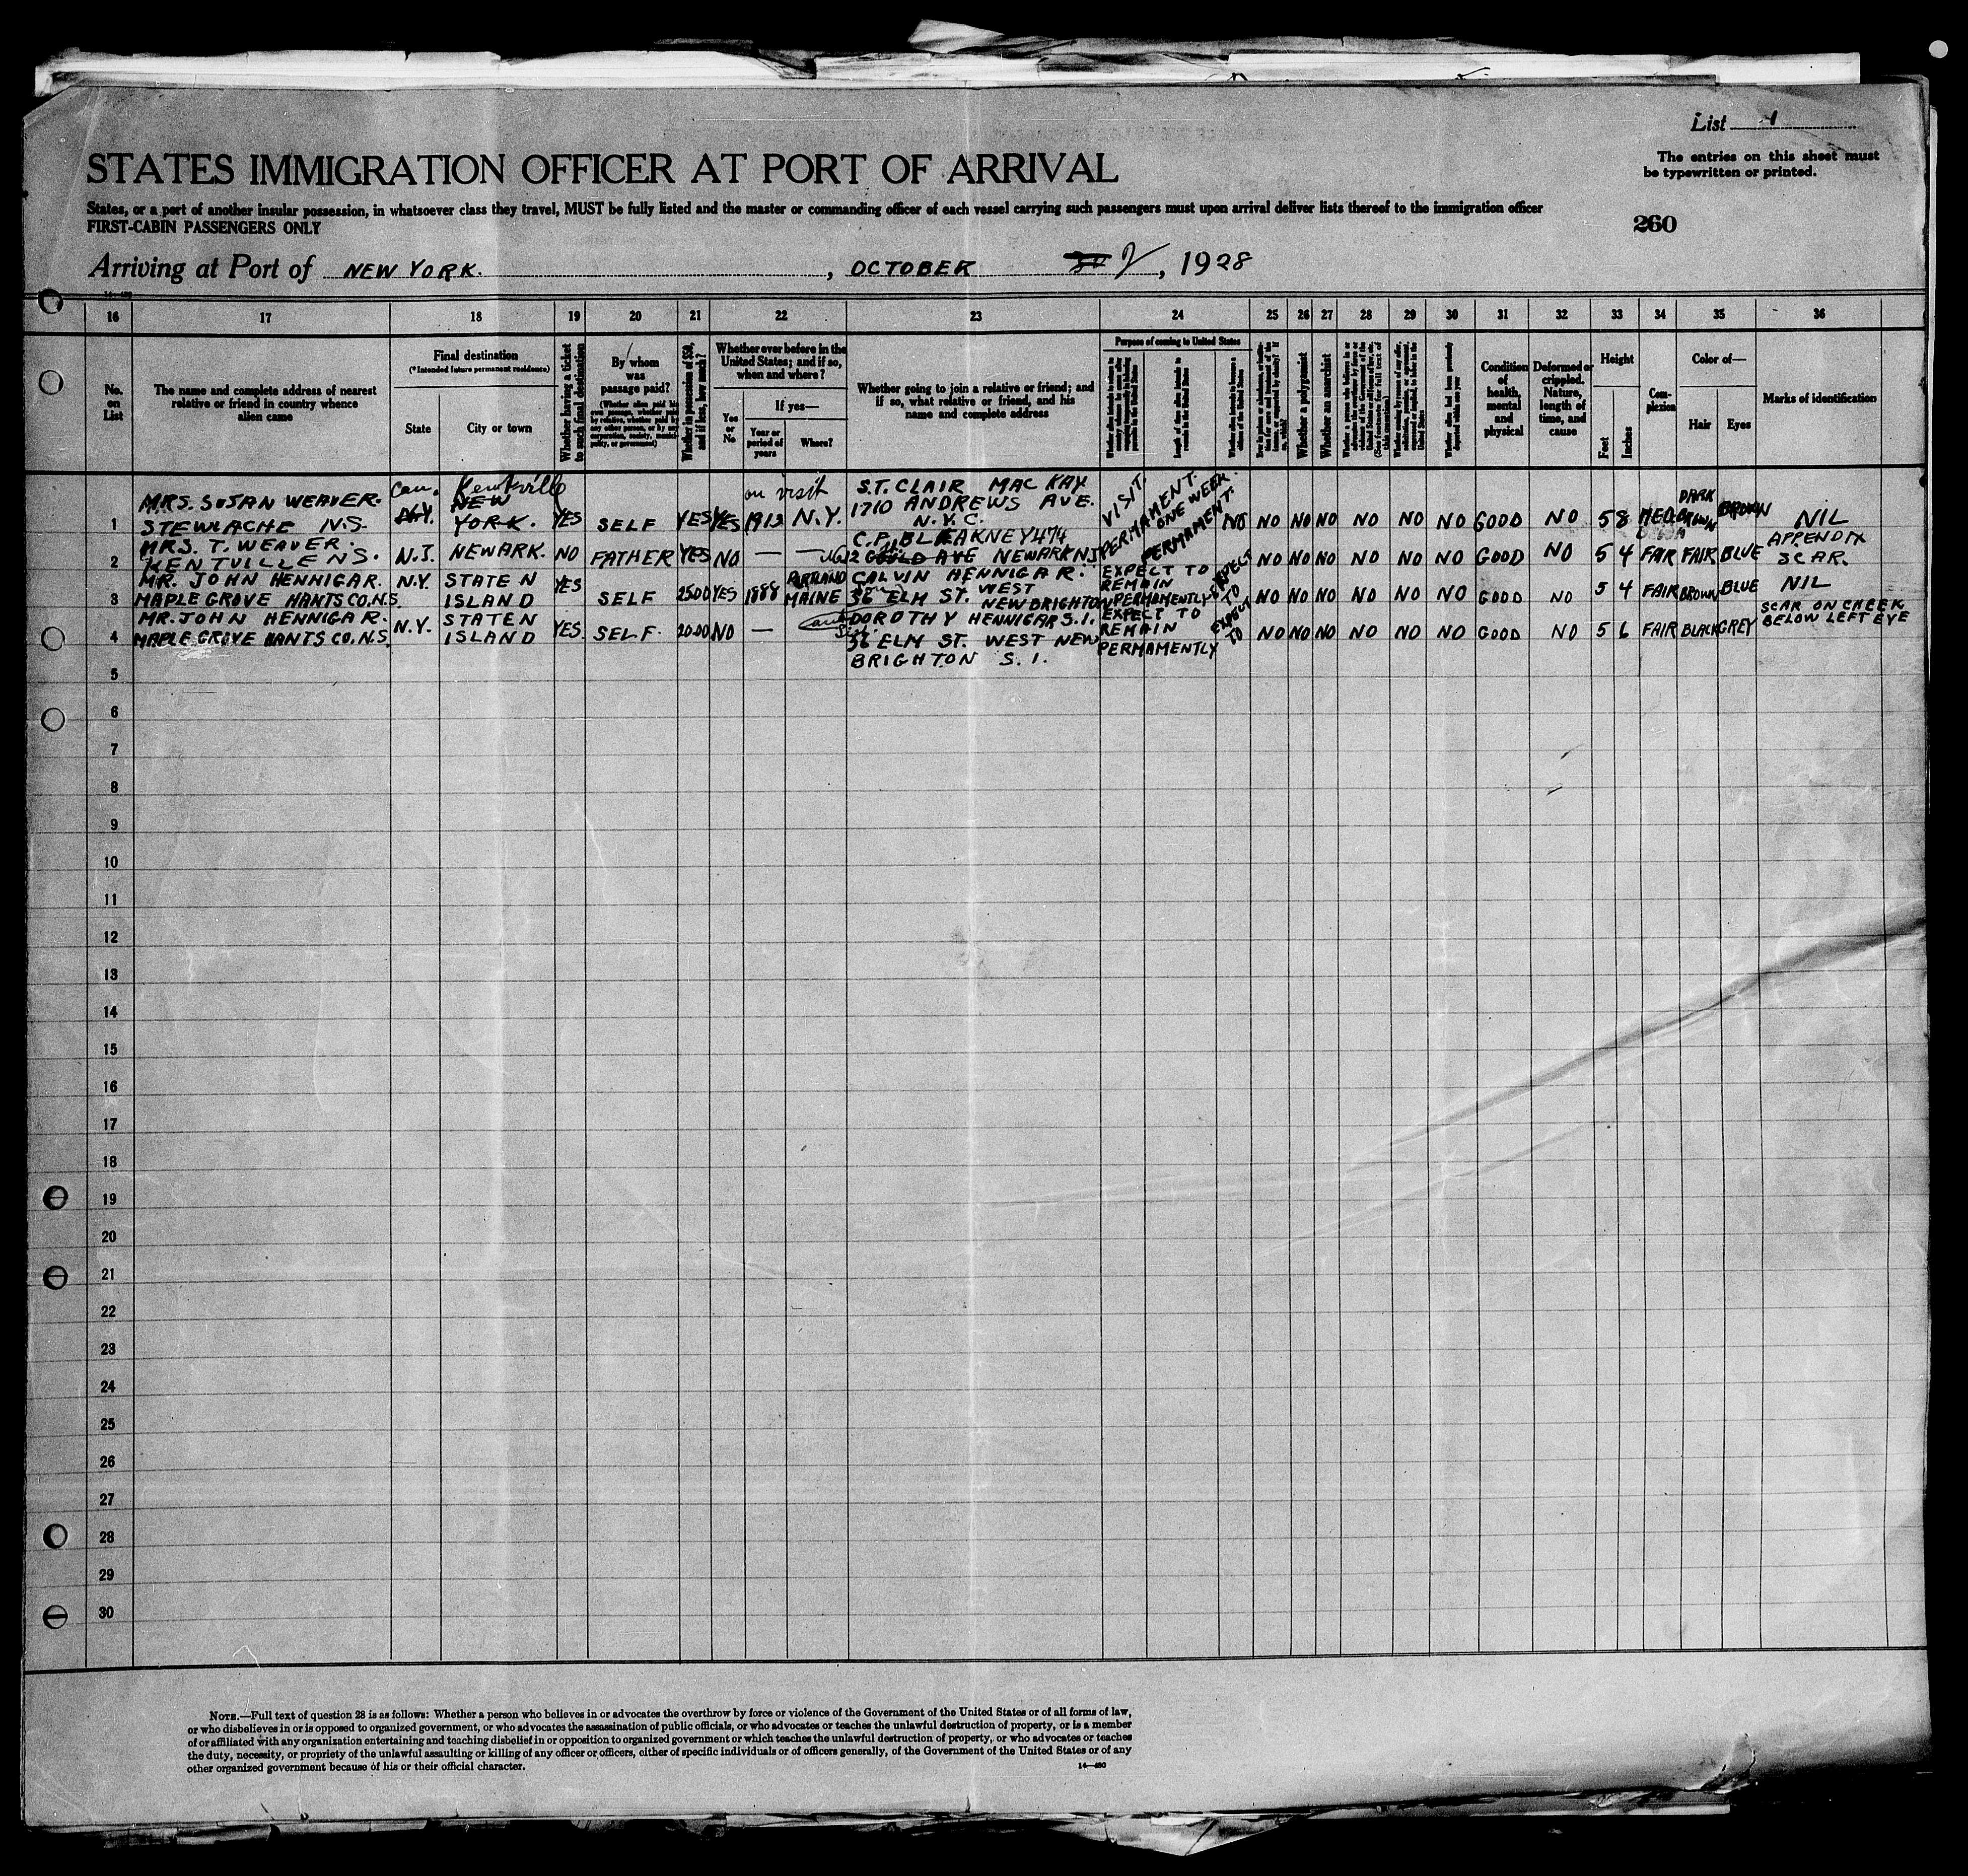 List 1
The entries on this sheet must
be typewritten or printed.
STATES IMMIGRATION OFFICER AT PORT OF ARRIVAL
States, or a port of another insular possession, in whatsoever class they travel, MUST be fully listed and the master or commanding officer of each vessel carrying such passengers must upon arrival deliver lists thereof to the immigration officer
FIRST-CABIN PASSENGERS ONLY
260
Arriving at Port of NEW YORK. , OCTOBER 2, 1928
16 17 18 19 20 21 22 23 24 25 26 27 28 29 30 31 32 33 34 35 36
No. on List
The name and complete address of nearest
relative or friend in country whence
alien came
Final destination
(*Intended future permanent residence)
State
City or town
Whether having a ticket
to such final destination
By whom
was
passage paid?
Whether in possession of $50,
and if less, how much?
Whether ever before in the
United States; and if so,
when and where?
Yes or No
If yes—
Year or period of years
Where?
Whether going to join a relative or friend; and
if so, what relative or friend, and his
name and complete address
Purpose of coming to United States
Whether a polygamist
Whether an anarchist
Condition of health, mental and physical
Deformed or crippled. Nature, length of time, and cause
Height
Feet
Inches
Complexion
Color of—
Hair
Eyes
Marks of identification
1 MRS. SUSAN WEAVER. STEWIACHE N.S. Can. N.Y. Kentville NEW YORK. YES SELF YES YES 1912 on visit N.Y. S.T. CLAIR MAC KAY 1710 ANDREWS AVE. N.Y.C. VISIT. ONE WEEK. NO NO NO NO NO NO NO GOOD NO 5 8 MED DARK BROWN BROWN NIL
2 MRS. T. WEAVER. KENTVILLE N.S. N.J. NEWARK. NO FATHER YES NO — — C.P. BLEAKNEY 474 NEWARK N.J. PERMAMENT. PERMAMENT. NO NO NO NO NO NO GOOD NO 5 4 FAIR FAIR BLUE APPENDIX SCAR.
3 MR. JOHN HENNIGAR. MAPLE GROVE HANTS CO. N.S. N.Y. STATEN ISLAND YES SELF 25.00 YES 1888 PORTLAND MAINE CALVIN HENNIGAR. 36 ELM ST. WEST NEW BRIGHTON EXPECT TO REMAIN PERMAMENTLY EXPECT TO NO NO NO NO NO NO GOOD NO 5 4 FAIR BROWN BLUE NIL
4 MR. JOHN HENNIGAR. MAPLE GROVE HANTS CO. N.S. N.Y. STATEN ISLAND YES. SELF. 20.00 NO — DOROTHY HENNIGAR S.I. 36 ELM ST. WEST NEW BRIGHTON S.I. EXPECT TO REMAIN PERMAMENTLY EXPECT TO NO NO NO NO NO NO GOOD NO 5 6 FAIR BLACK GREY SCAR ON CHEEK BELOW LEFT EYE
5
6
7
8
9
10
11
12
13
14
15
16
17
18
19
20
21
22
23
24
25
26
27
28
29
30
NOTE.—Full text of question 28 is as follows: Whether a person who believes in or advocates the overthrow by force or violence of the Government of the United States or of all forms of law,
or who disbelieves in or is opposed to organized government, or who advocates the assassination of public officials, or who advocates or teaches the unlawful destruction of property, or is a member
of or affiliated with any organization entertaining and teaching disbelief in or opposition to organized government or which teaches the unlawful destruction of property, or who advocates or teaches
the duty, necessity, or propriety of the unlawful assaulting or killing of any officer or officers, either of specific individuals or of officers generally, of the Government of the United States or of any
other organized government because of his or their official character.
14—480